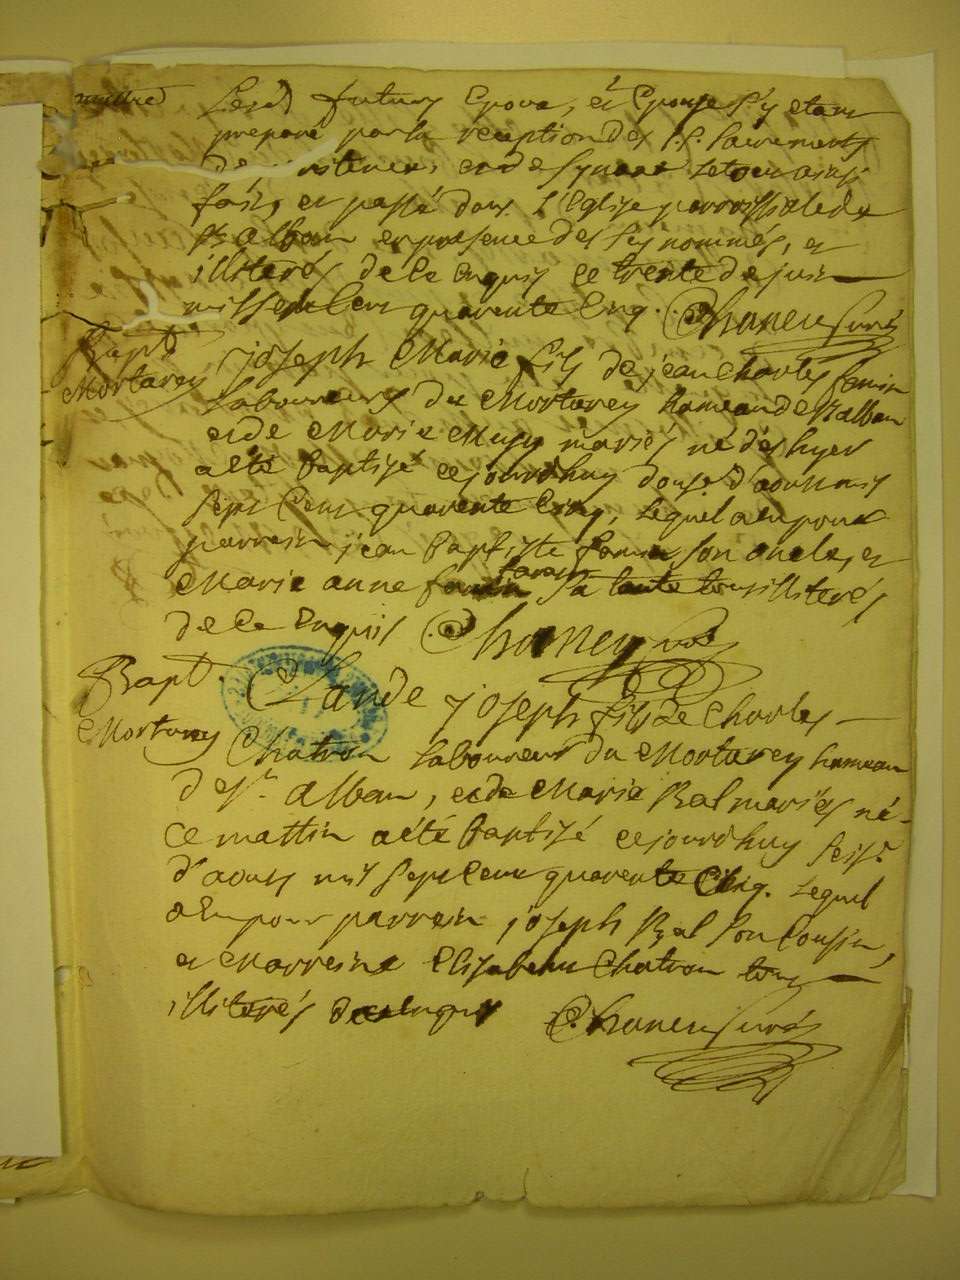 lesd futurs Epoux, et Epouse s'y etant
preparé par la reception des S.S. Sacrements
de penitence, et de le tout ainsi
fait, et passé dans l'Eglise parroissiale de
St alban en presence des sus nommés, et
illiterés de ce enquis ce trente de juin
mil sept cent quarante cinq. Chaneu Curé
Bapt
Mortarey
joseph Marie fils de jean charles famin
laboureur du Mortarey hameau de St alban
et de Marie mariés né dès hyer
a eté baptisé cejourdhuy douse d'aoust mil
sept cent quarante cinq, lequel a eu pour
parrain jean baptiste famin son oncle, et
Marie anne famin sa tante tous illiterés
de ce enquis Chaneu Curé
Bapt.
Mortarey
Claude joseph fils de Charles
Chatron laboureur du Mortarey hameau
de St. alban, et de Marie Bal mariés né
ce mattin a eté baptisé cejourdhuy seise
d'aoust mil sept cent quarante cinq. lequel
a eu pour parrein joseph Bal son cousin,
et Marreine Elisabeth Chatron tous
illiterés de ce enquis Chaneu Curé